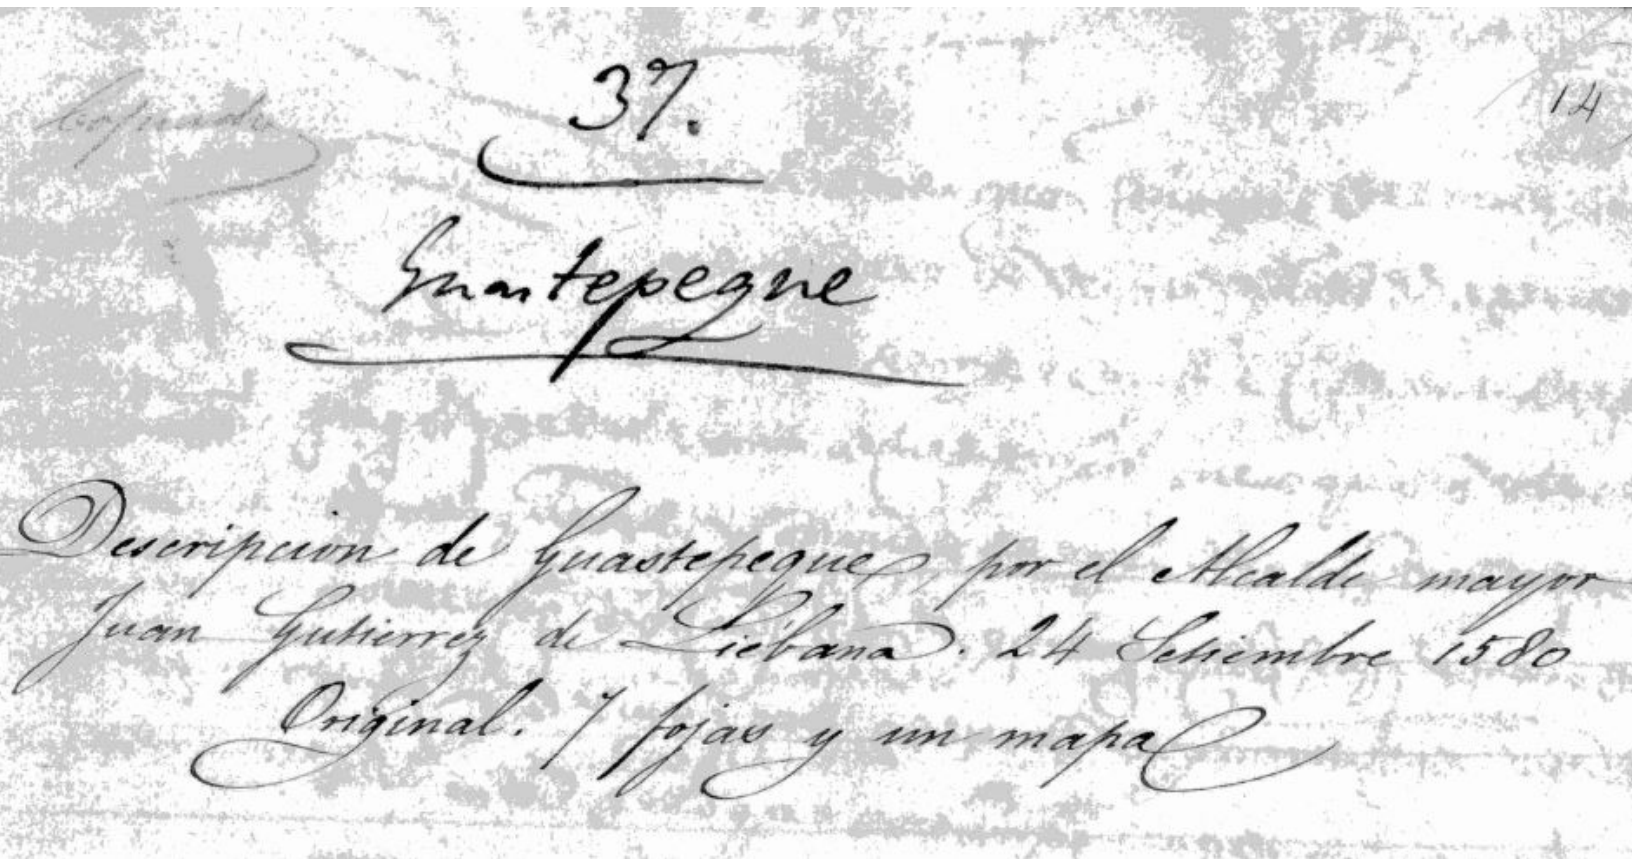 14
37.
Guastepeque
Descripcion de Guastepeque, por el Alcalde mayor
Juan Gutierrez de Liébana. 24 Setiembre 1580
Original. 7 fojas y un mapa